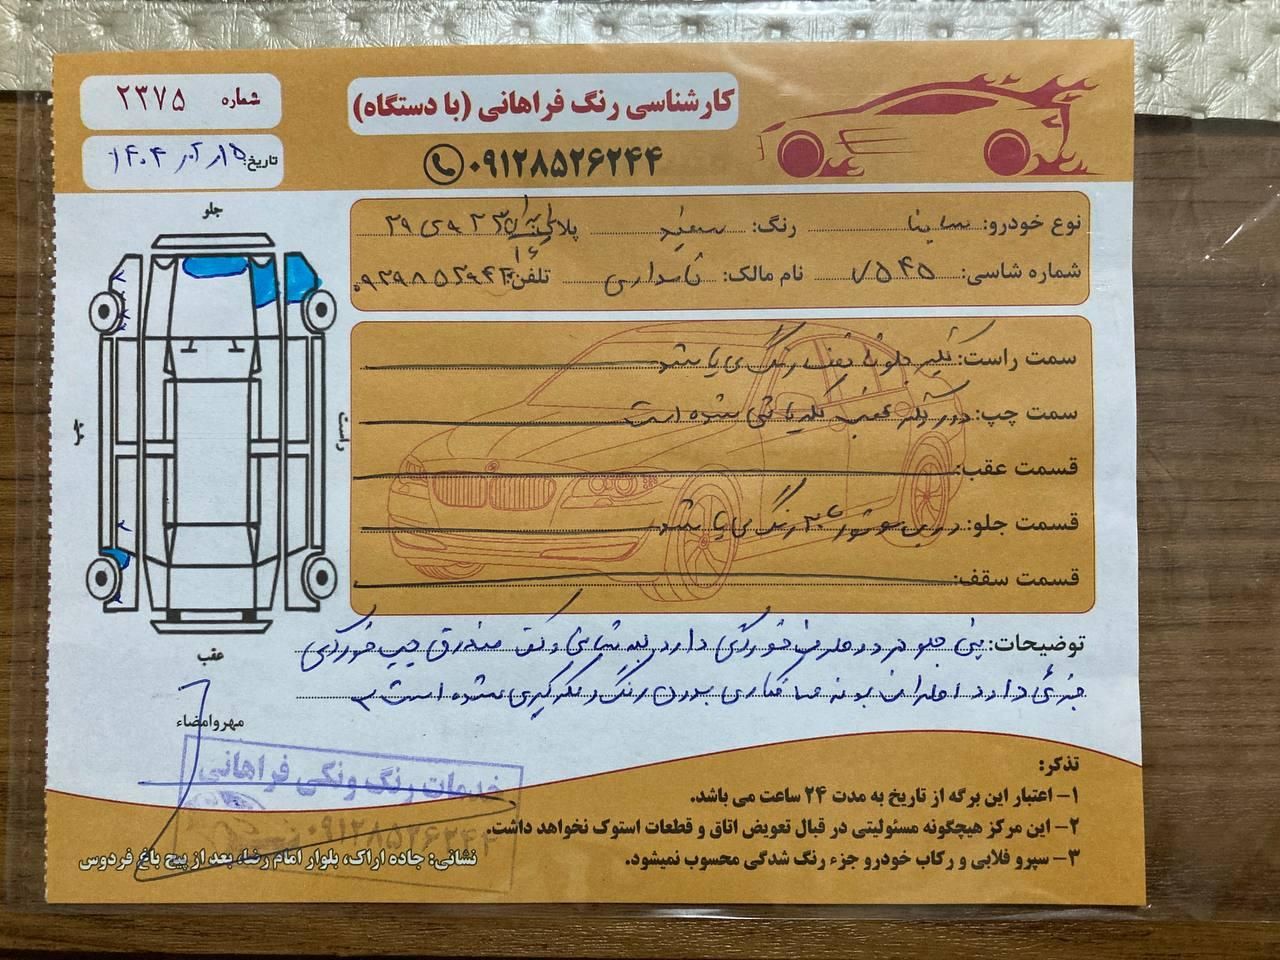 شماره ۲۳۷۵
کارشناسی رنگ فراهانی (با دستگاه)
تاریخ: ۱۴۰۴
۰۹۱۲۸۵۲۶۲۴۴
نوع خودرو: ساینا رنگ: سفید پلاک:
شماره شاسی: نام مالک: تلفن:
جلو
راست
چپ
عقب
سمت راست: گلگیر جلو تا نصف رنگ می باشد
سمت چپ: دور گلگیر عقب شده است
قسمت عقب:
قسمت جلو: رنگ می باشد
قسمت سقف:
توضیحات: سینی جلو در دو طرف خوردگی دارد و کف صندوق چپ خوردگی
جزئی دارد اطراف بدنه صافکاری بدون رنگ و لکه گیری شده است
مهروامضاء
خدمات رنگ ونکی فراهانی
۰۹۱۲۸۵۲۶۲۴۴
تذکر:
۱- اعتبار این برگه از تاریخ به مدت ۲۴ ساعت می باشد.
۲- این مرکز هیچگونه مسئولیتی در قبال تعویض اتاق و قطعات استوک نخواهد داشت.
۳- سپرو فلابی و رکاب خودرو جزء رنگ شدگی محسوب نمیشود.
نشانی: جاده اراک، بلوار امام رضا، بعد از پیچ باغ فردوس